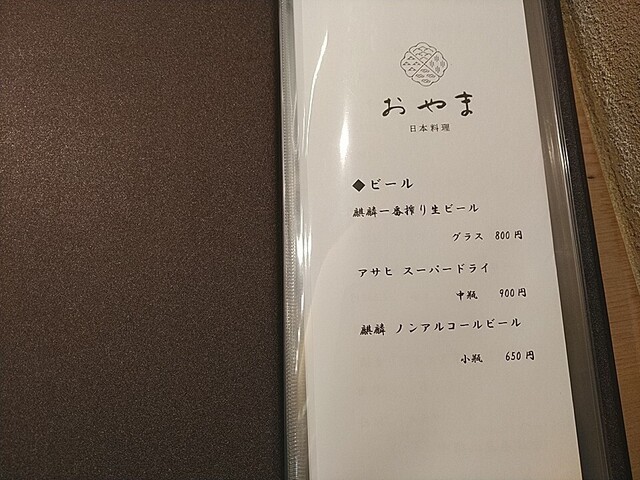 おやま
日本料理
◆ビール
麒麟一番搾り生ビール
グラス 800円
アサヒ スーパードライ
中瓶 900円
麒麟 ノンアルコールビール
小瓶 650円